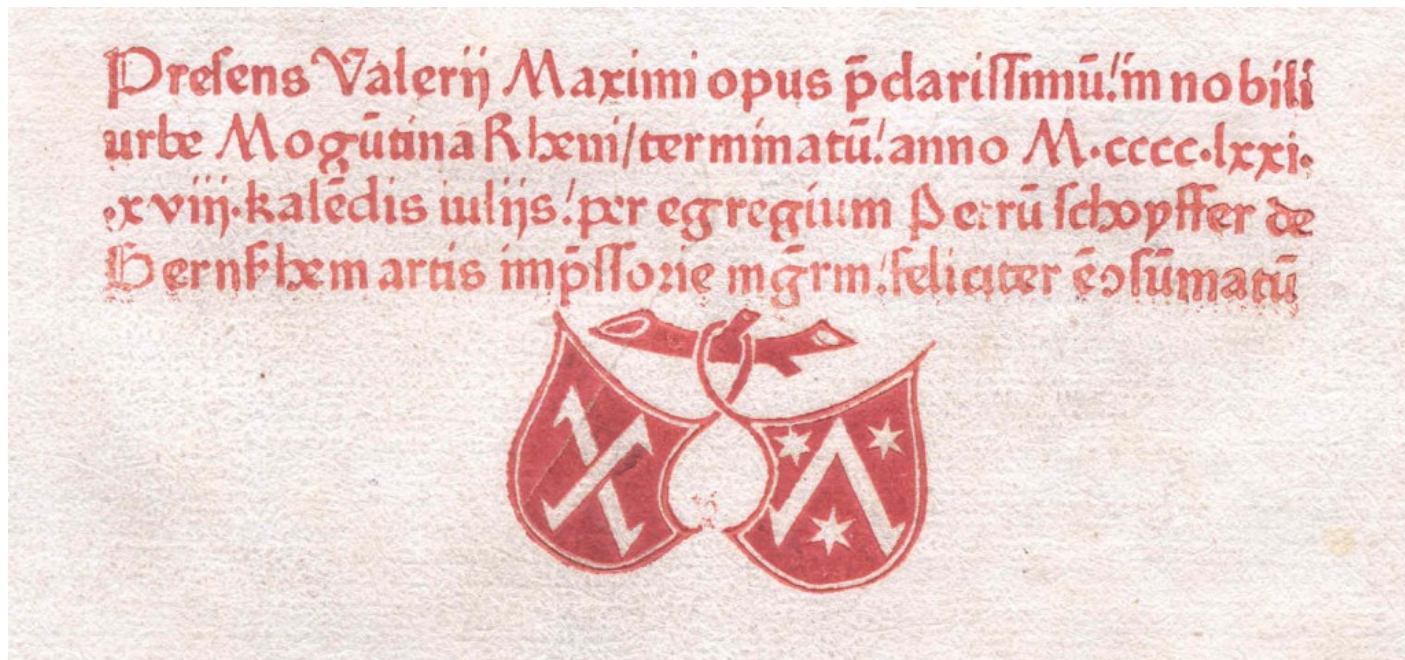 Preſens Valerij Maximi opus p̄clariſſimū! in nobili
urbe Mogūtina Rheni/terminatū! anno M·cccc·lxxi·
·xviij·kalēdis iulijs! per egregium Petrū ſchoyffer de
Gernſzhem artis imp̄ſſorie mgr̄m! feliciter ē ↄſūmatū